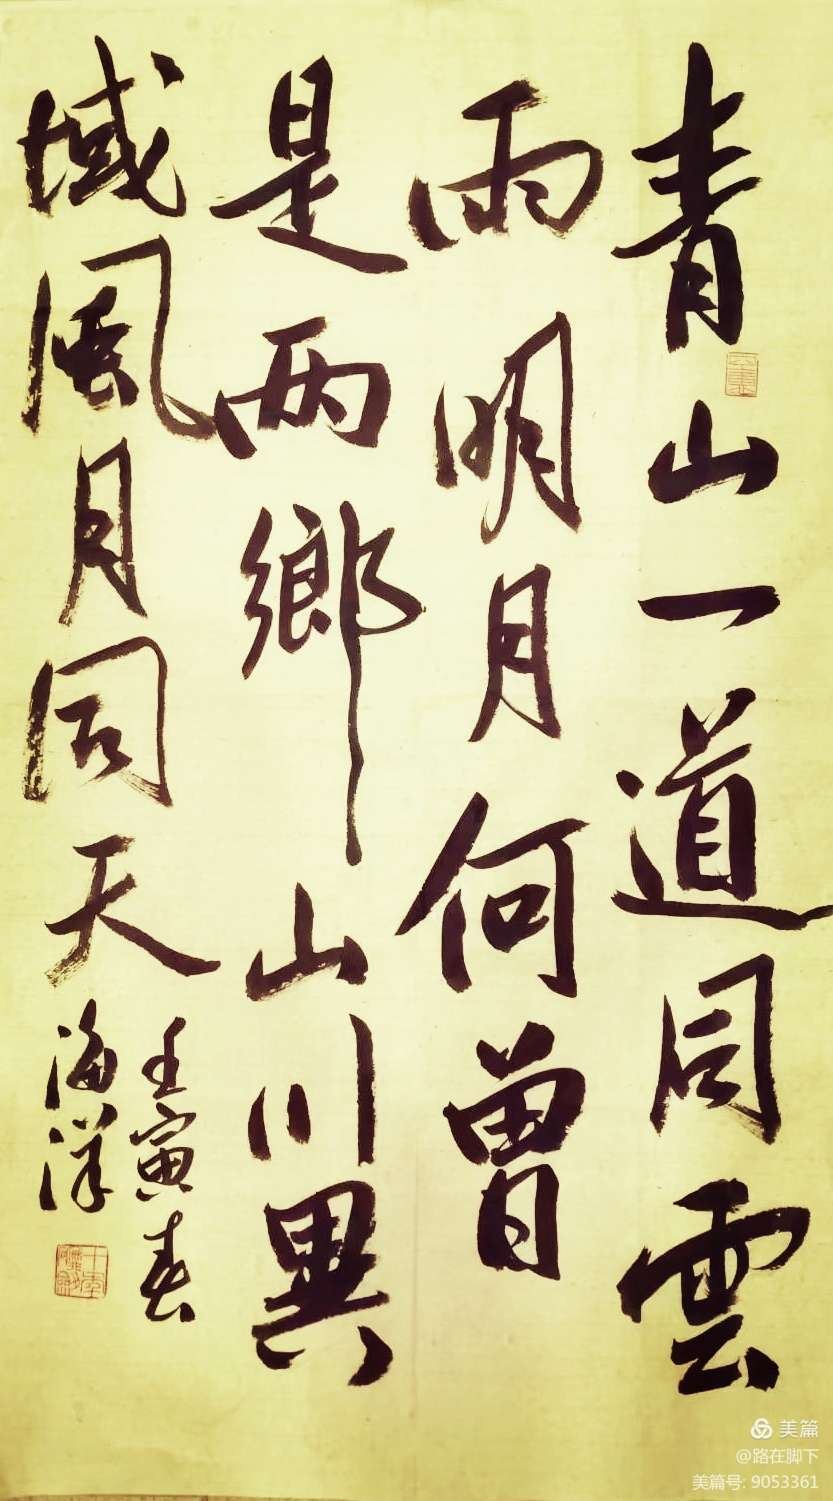 青山一道同雲
雨明月何曾
是两鄉山川異
域風月同天
壬寅春
海洋
美篇
@路在脚下
美篇号: 9053361